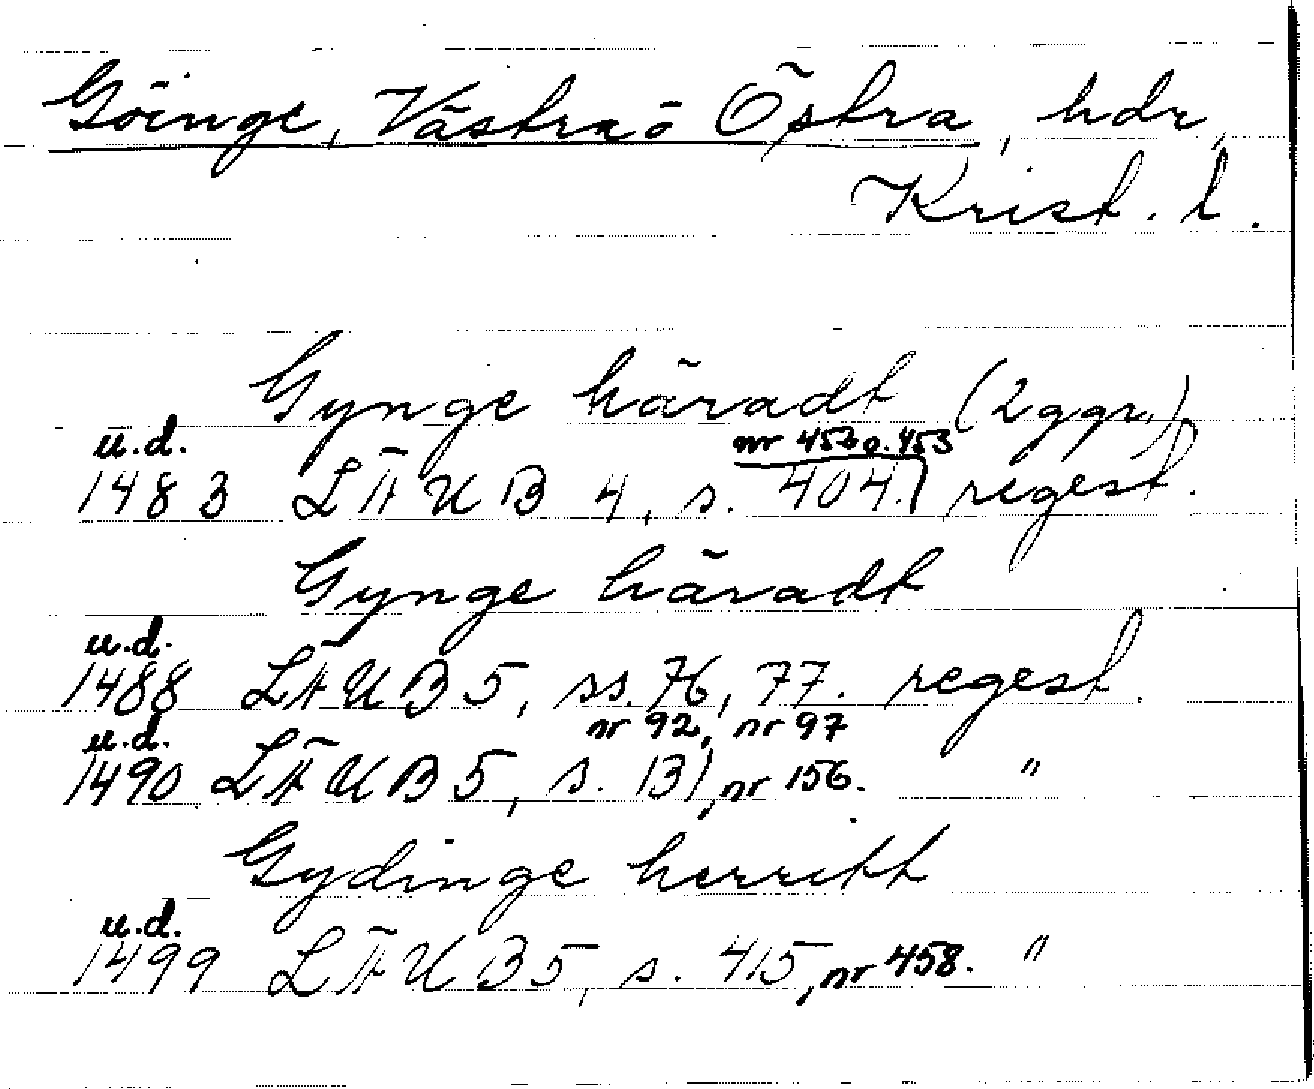 Göinge, Västra ö Östra, hdr,
Krist. l.
Gynge häradt (2 ggr)
u.d. nr 452 o. 453
1483 LÄUB 4, s. 404. regest.
Gynge häradt
u.d.
1488 LÄUB 5, ss. 76, 77. regest.
u.d. nr 92, nr 97
1490 LÄUB 5, s. 131, nr 156. "
Gydinge herritt
u.d.
1499 LÄUB 5, s. 415, nr 458. "